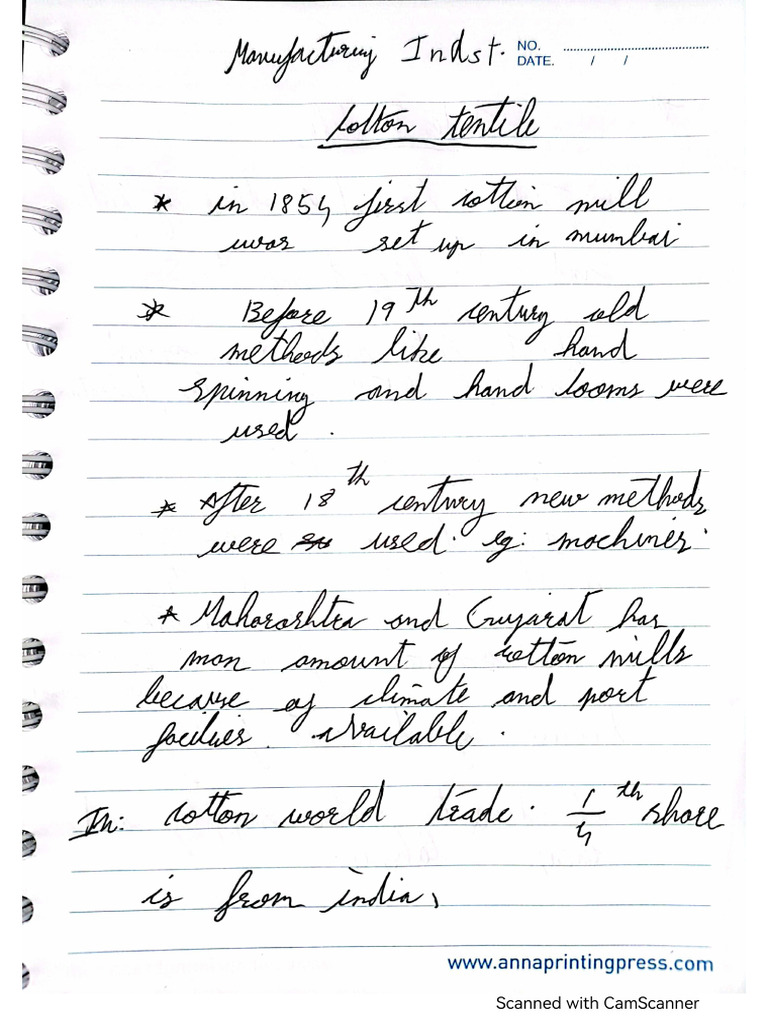 Manufacturing Indst.
NO.
DATE. / /
Cotton textile
* in 1854 first cotton mill
was set up in mumbai
* Before 19th century old
methods like hand
spinning and hand looms were
used.
* After 18th century new methods
were used. eg: machines.
* Maharashtra and Gujarat has
max amount of cotton mills
because of climate and port
facilies available.
Im: cotton world trade. 1/4th share
is from india,
www.annaprintingpress.com
Scanned with CamScanner